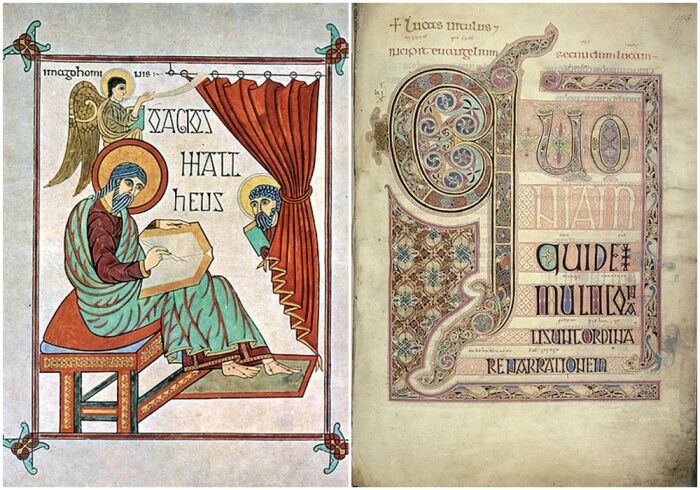 imago homi nis
O AGIOS
MATT
HEUS
+ Lucas uitulus
incipit euangelium secundum lucam
QUO
NIAM
QUIDEM
MULTI CONA
TI SUNT ORDINA
RE NARRATIONEM